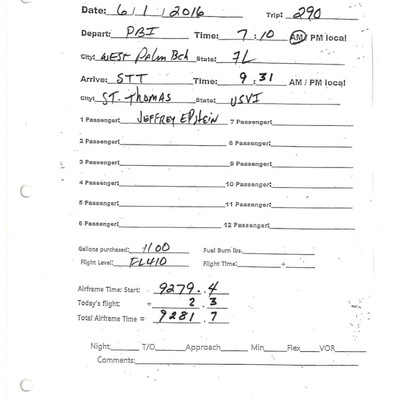 Date: 6 / 1 / 2016 Trip: 290
Depart: PBI Time: 7 : 10 AM / PM local
City: West Palm Bch State: FL
Arrive: STT Time: 9 : 31 AM / PM local
City: ST. Thomas State: USVI
1 Passenger: Jeffrey Epstein 7 Passenger:
2 Passenger: 8 Passenger:
3 Passenger: 9 Passenger:
4 Passenger: 10 Passenger:
5 Passenger: 11 Passenger:
6 Passenger: 12 Passenger:
Gallons purchased: 1100 Fuel Burn lbs.
Flight Level: FL410 Flight Time: +
Airframe Time: Start: 9279.4
Today's flight: + 2.3
Total Airframe Time = 9281.7
Night: T/O Approach Min Flex VOR
Comments: